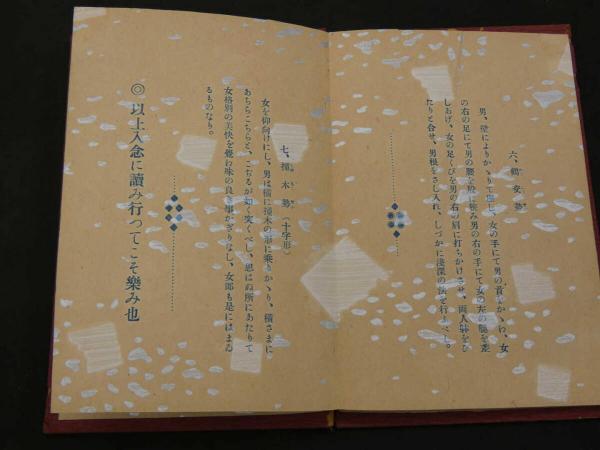 六、鶴交勢
男、壁によりかゝりて座し、女の手にて男の首をかゝわ、女
の右の足にて男の腰を股に挾み男の右の手にて女の左の腸を差
しあげ、女の足くびを男の右の肩に打ちかけさせ、両人躰をひ
たりと合せ、男根をさし入れ、しづかに淺深の法を行ふべし。
七、撞木勢（十字形）
女を仰向けにし、男は横に撞木の形に乗りかゝり、橫さまに
あちらこちらと、こぢるが如く突くべし、思はぬ所にあたりて
女格別の美快を覺わ味の良き事かぎりなし、女郎も是にはまゐ
るものなり。
◎以上入念に讀み行つてこそ樂み也